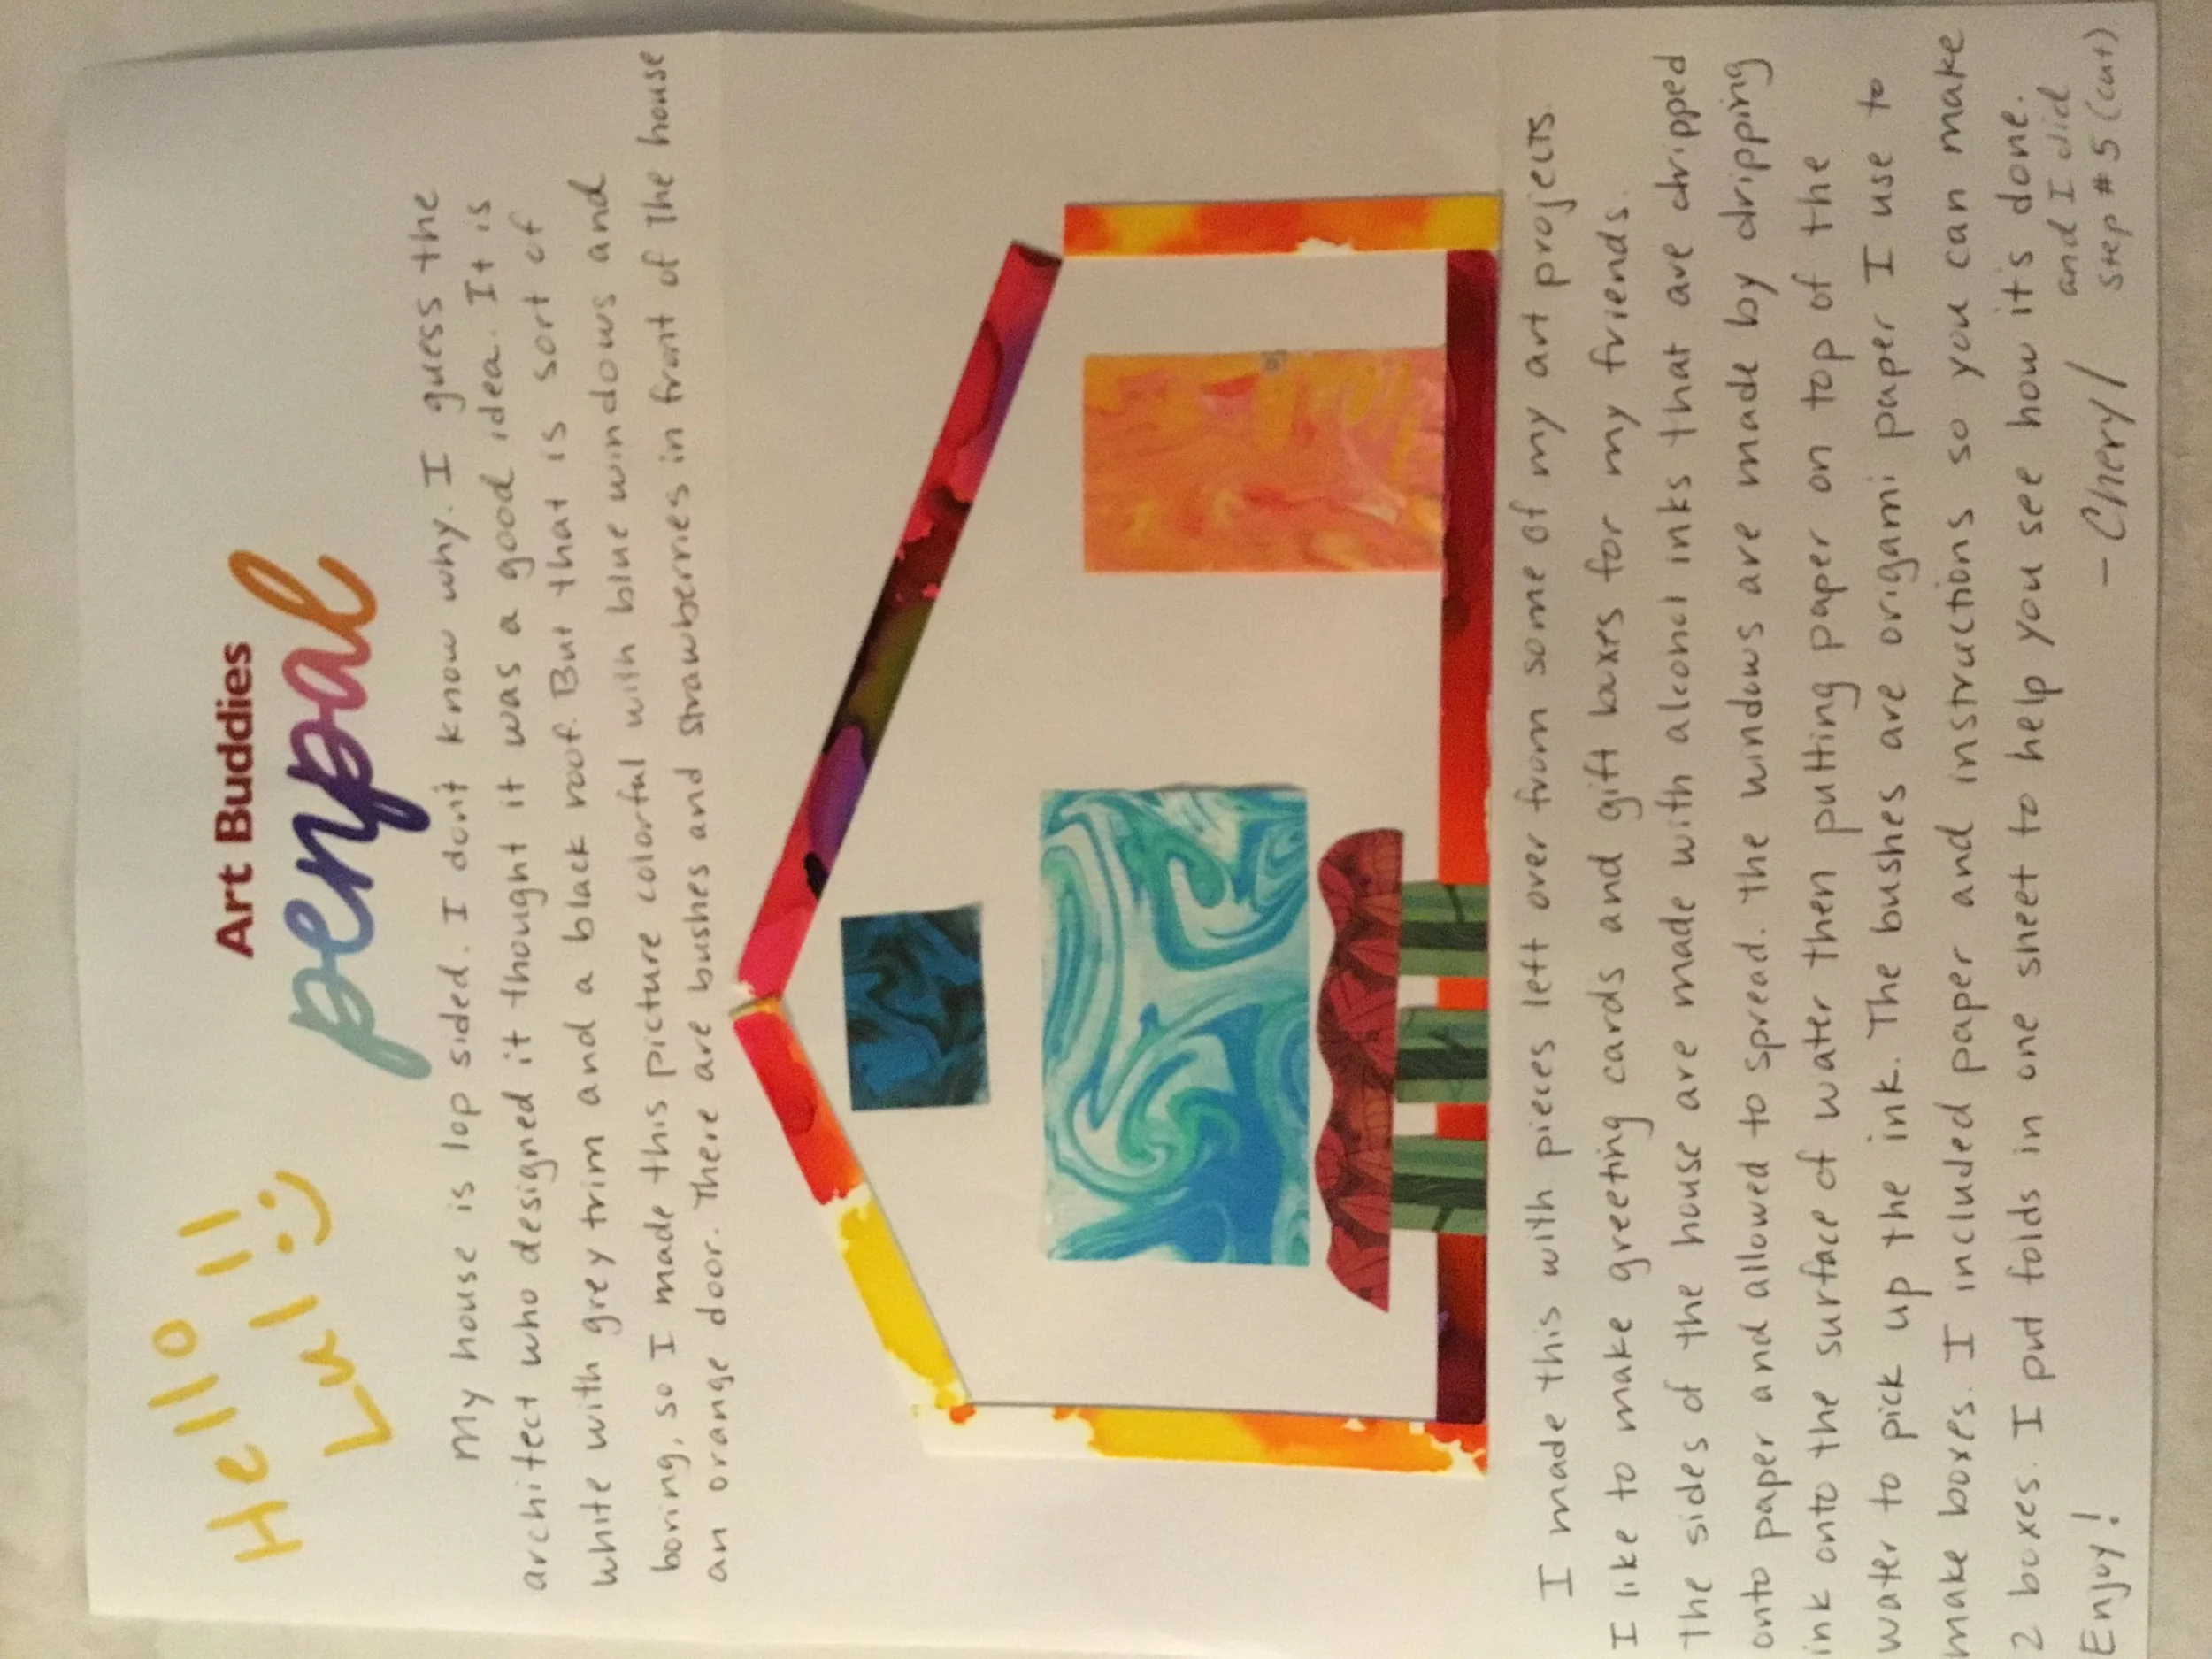 Hello!!
Lul :)
Art Buddies
penpal
My house is lop sided. I don't know why. I guess the
architect who designed it thought it was a good idea. It is
white with grey trim and a black roof. But that is sort of
boring, so I made this picture colorful with blue windows and
an orange door. There are bushes and strawberries in front of the house
I made this with pieces left over from some of my art projects.
I like to make greeting cards and gift boxes for my friends.
The sides of the house are made with alcohol inks that are dripped
onto paper and allowed to spread. The windows are made by dripping
ink onto the surface of water then putting paper on top of the
water to pick up the ink. The bushes are origami paper I use to
make boxes. I included paper and instructions so you can make
2 boxes. I put folds in one sheet to help you see how it's done.
and I did
step #5 (cut)
Enjoy!
- Cheryl